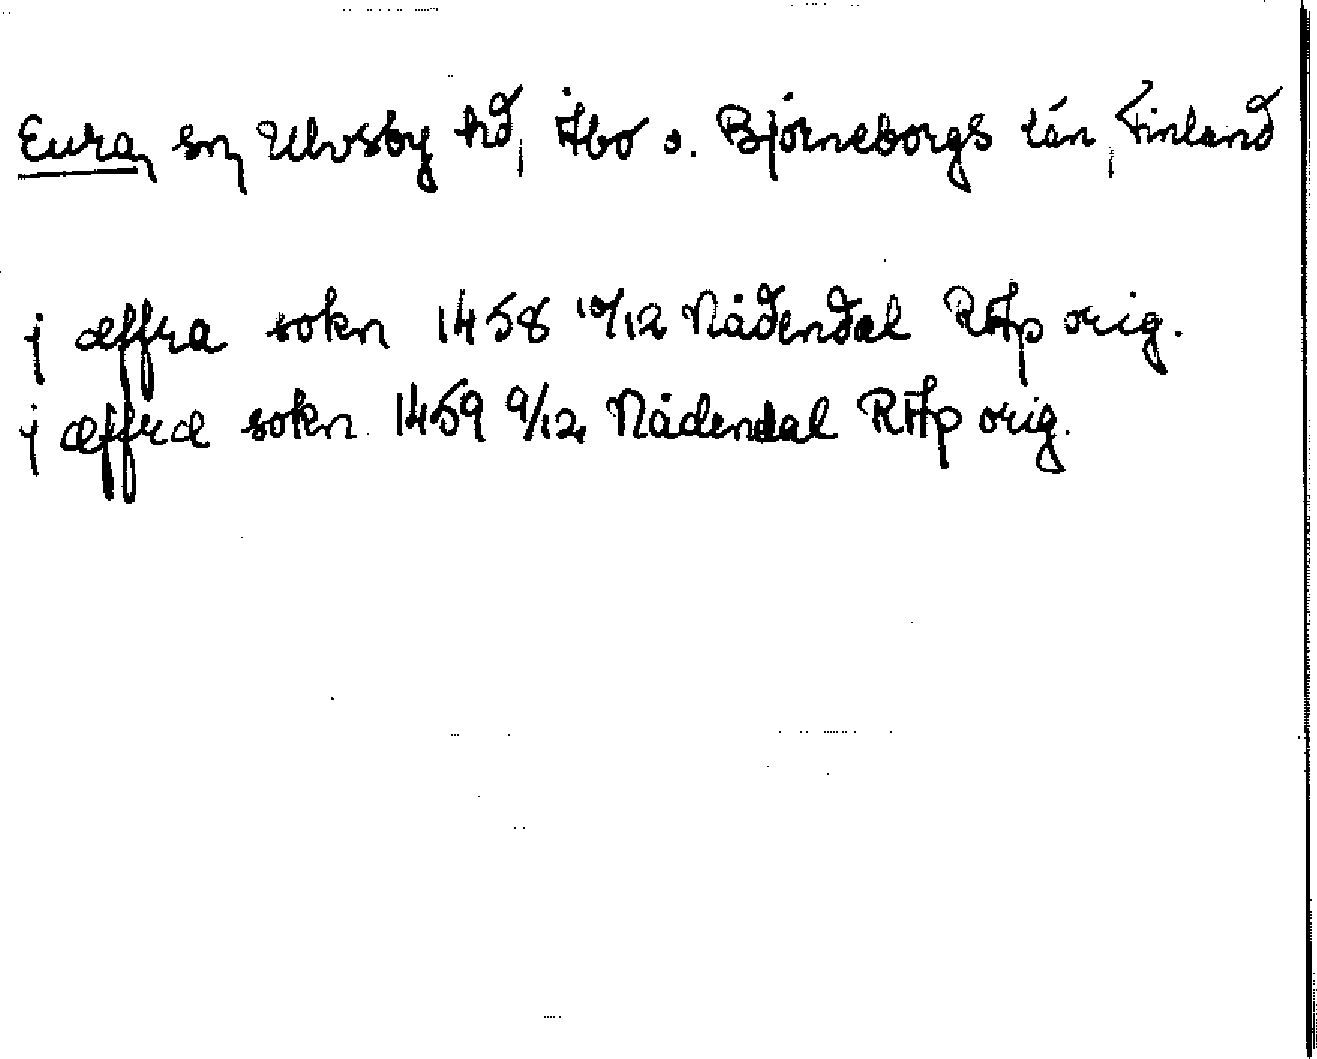 Eura, sn, Ulvsby hd, Åbo o. Björneborgs län, Finland
j æffra sokn 1458 10/12 Nådendal RAp orig.
j æffræ sokn 1459 9/12 Nådendal RAp orig.